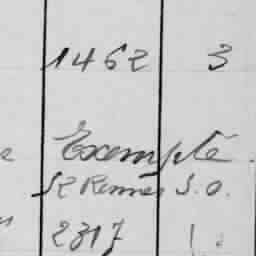 1462 3
Exempté.
SR Rennes S.O.
2317